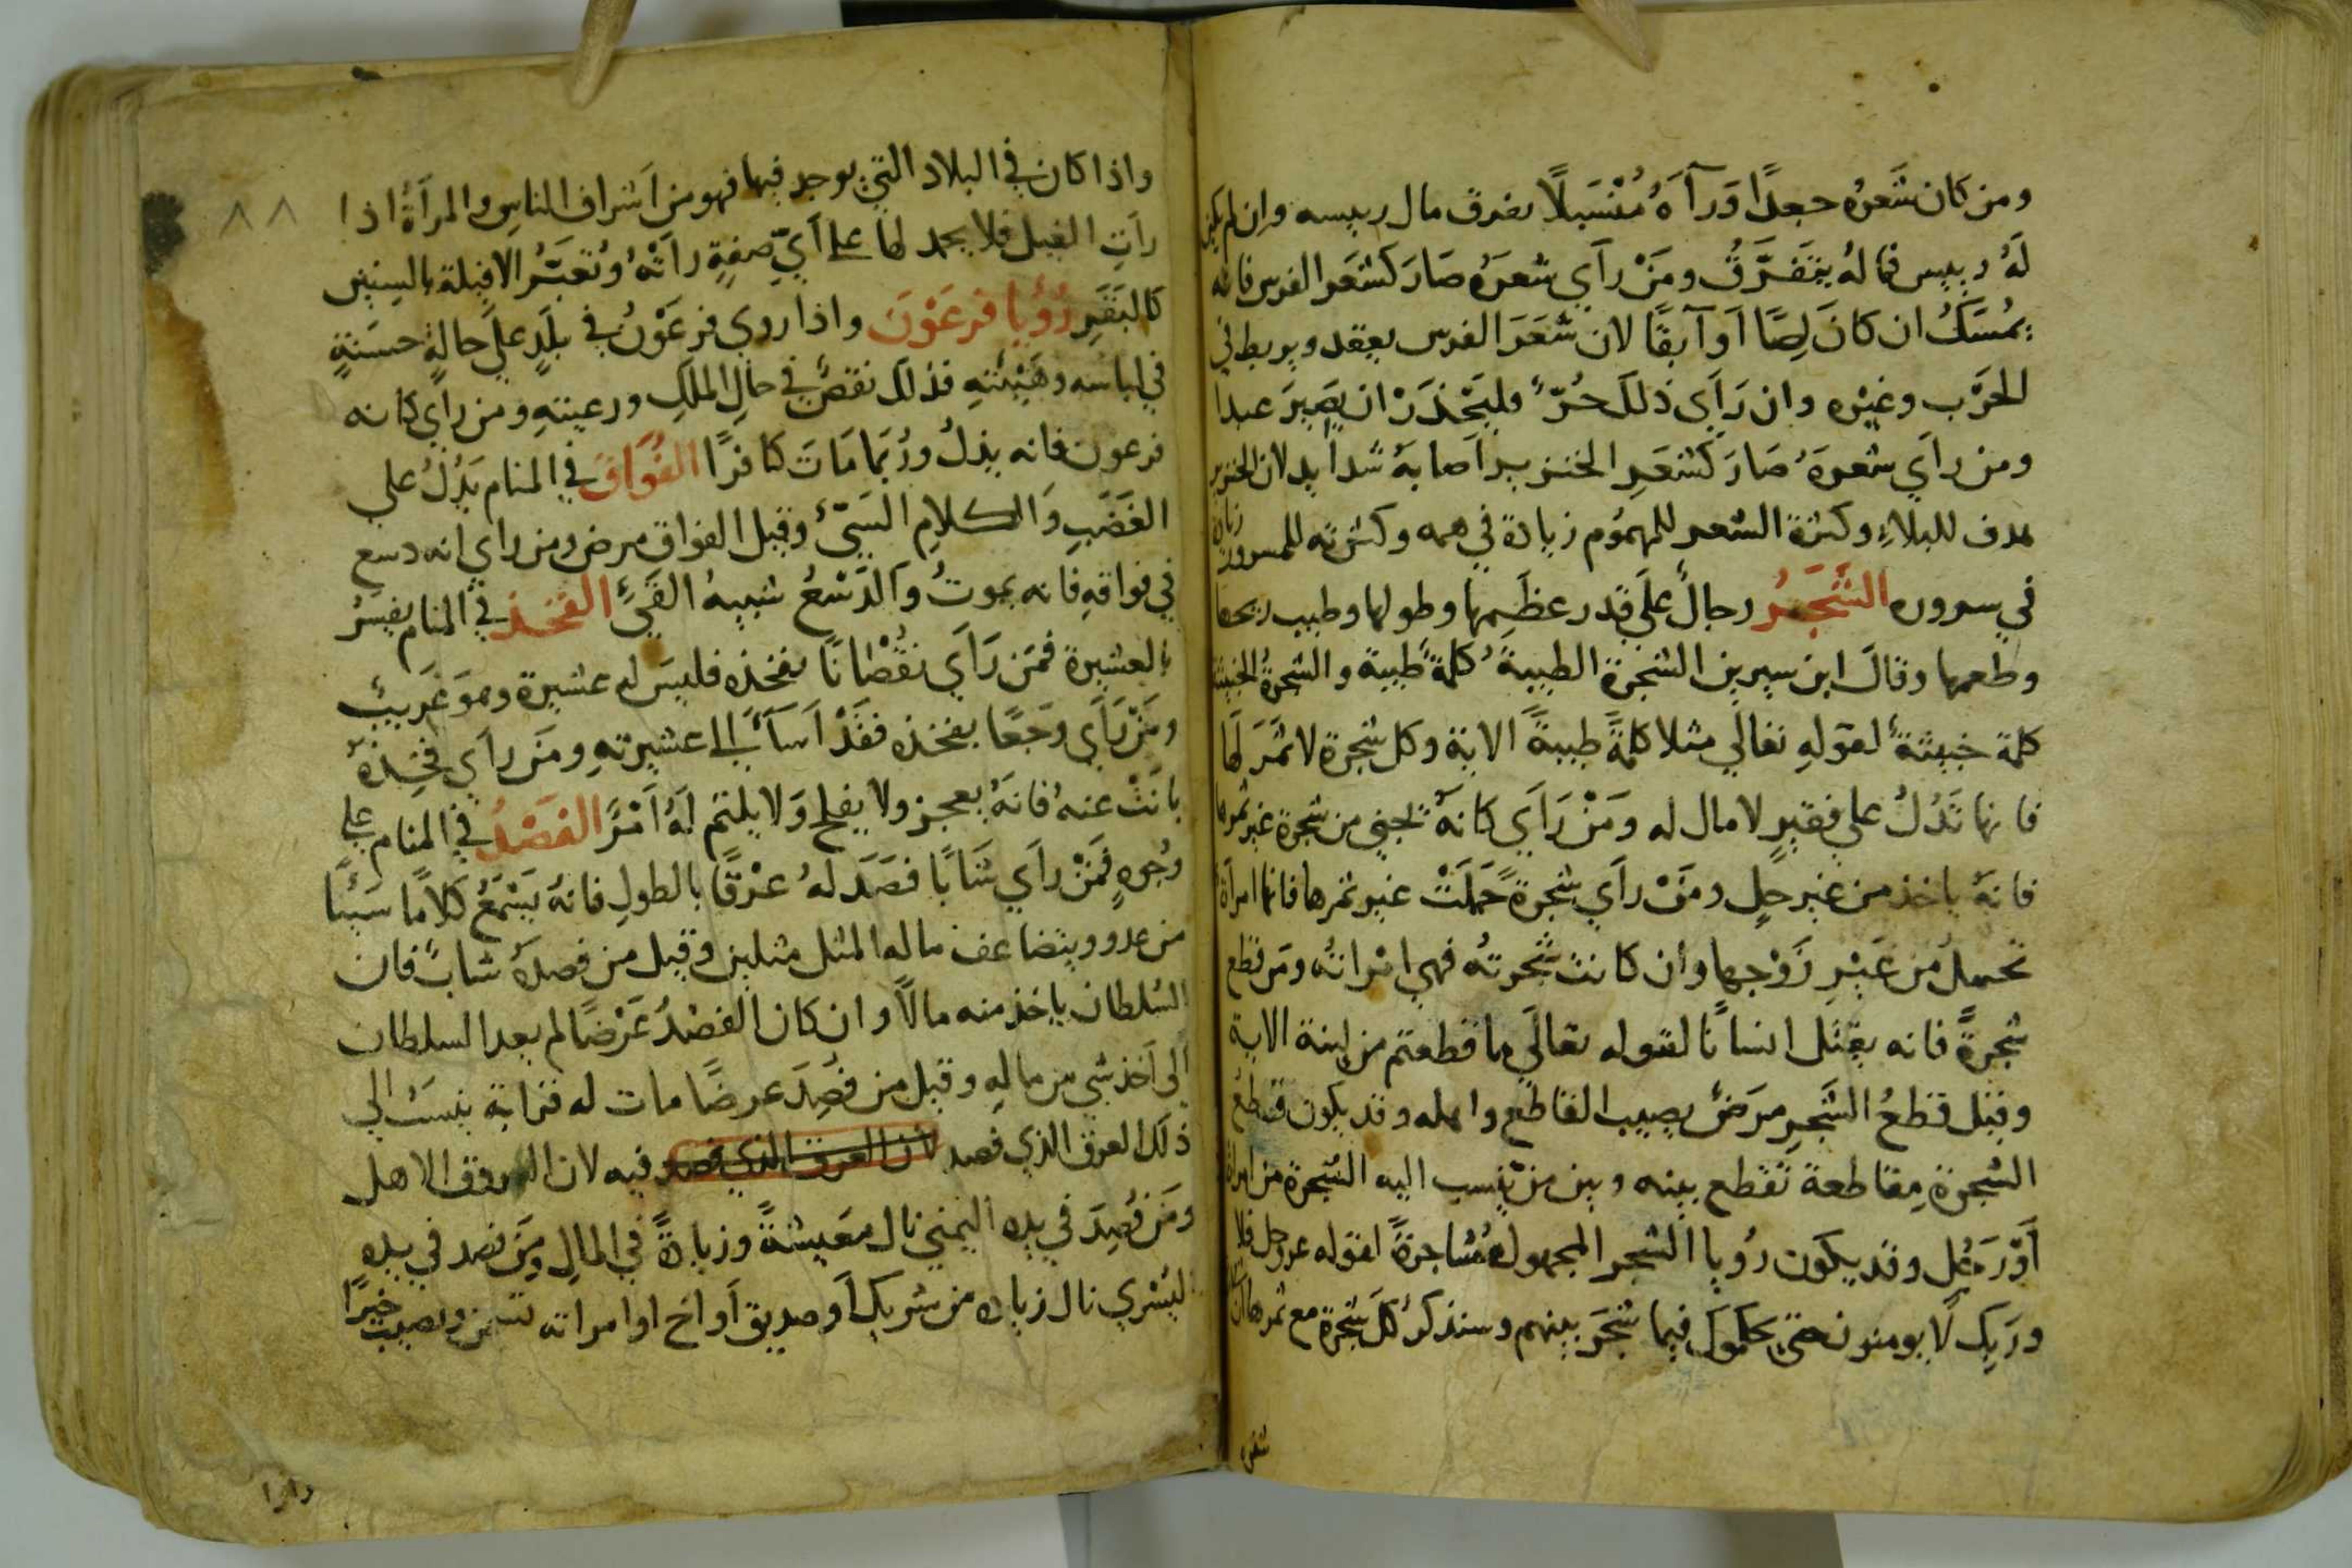 ومن كان شَعرُه جعدًا وَرآهُ مُنْسَبلًا تفرق مال رييسه وان لم يكن
لَهُ رييس فماله يتَفرَّقُ ومَنْ رآي شعرَهُ صَارَ كشَعَر الفرس فانه
يمُسَكُ ان كانَ لِصًا اَو آبقًا لان شَعَرَ الفرس يعقد ويربط في
الحَرْب وغيْره وان رَآي ذلكَ حُرّ فليَحْذَرْ ان يَصِيرَ عبدا
ومن رآي شعرهُ صَارَ كشعَرِ الخنزير اَصَابهُ شدايد لان الخنزير
هدف للبلاءِ وكثرة الشعر للمهمُوم زيادة في همه وكثرته للمسرور زيادة
في سروره الشَّجَرُ رجالٌ علَي قدر عظَمِها وطولها وطيب ريحها
وطعمها وقالَ ابن سيرين الشجرة الطيبةُ كلمةٌ طيبة والشجرةُ الخبيثة
كلمة خبيثةٌ لقولهِ تعالي مثلا كلمةً طيبةً الاية وكل شجرة لا ثمَرَ لَها
فانها تَدُلُ علي فقيرٍ لا مال له ومَنْ رَآي كانهُ يجني من شجرة غير ثمرها
فانهُ ياخذ من غير حلٍ ومَنْ رآي شجرةً حَمَلَتْ غير ثمرها فانها امراة
تحملُ من غَيْرِ زَوْجها وان كانت شجرتهُ فهي امْراتهُ ومَن قطع
شجرةً فانه يقتل انسانًا لقوله تعالَي ما قطعتم من لينة الاية
وقيل قطعُ الشَّجرِ مرَضٌ يصيب القاطع واهله وقد يكون قطعُ
الشجرة مِقاطعة تقطع بينه وبين من يُنْسب اليه الشجرة من امراة
اَوْ رَجُل وقد يكون رُويا الشجر المجهولة مُشاجرةً لقوله عز وجل فلا
ورَبِك لَا يومنون حتي يحكموك فيما شجَرَ بينهم وسنذكر كلَ شجرة مع ثمرها
٨٨
واذا كان في البلاد التي يوجد فيها فهو من اَشراف الناس والمراَةُ اذا
رآتِ الفيل فلا يحمد لها علي اَيّ صفةٍ راَتْهُ وتُعَبَّرُ الافيلة بالسنين
كالبَقَرِ رُؤيا فرعَوْنَ واذا روي فرعَوْنُ في بلَدٍ علَي حالةٍ حسَنةٍ
في لباسه وهَيْئتهِ فذلك نقصٌ في حالِ الملكِ ورعيتهِ ومن رآي كانه
فرعون فانه يذلُ ورُبَما مَاتَ كافرًا الفُوَاقَ في المنام يَدُلُ علي
الغَضَبِ وَالكلامِ السَيّئ وقيل الفواق مرض ومن راي انه دسع
في فواقهِ فانه يموتُ وَالدَسْعُ شبيهُ القَيّ الفَخذ في المنام يفسرُ
بالعشيرة فمَن رَآي نقُصْانًا بفخذه فليسَ له عشيرة وهوَ غَريبٌ
ومَنْ رَآي وَجَعًا بفخذه فقَدْ اَسآءَ الي عشيرتهِ ومَن رآي فخِذهُ
بانَتْ عنهُ فانهُ يعجز ولا يفلح وَلا يلتم لَهُ اَمْرً الفَصْدُ في المنام علي
وُجوهٍ فمَنْ رآي شَابًا فصَدَ لهُ عرْقًا بالطولِ فانهُ يَسْمَعُ كلامًا سَيئًا
من عدو ويتضاعف ماله المثل مثلين وقيل من فصدهُ شابٌ فان
السُلطان ياخذ منه مالًا وان كان الفصْدُ عَرْضًا لم يعد السلطان
اَلي اَخذ شي من مالهِ وقيل من فُصِدَ عرضًا مات له قرابة ينسَبُ الي
ذلك العرق الذي فصد لان العرق الذي فصد فيه لان العروق الاهل
ومَن فُصِدَ في يده اليمني نال معَيشةً وزيادةً في المالِ ومَن فصد في يده
اليُسْري نال زيادة من شريك اَو صديق اَو اخ او امراته تسمن ويصيب خيرًا